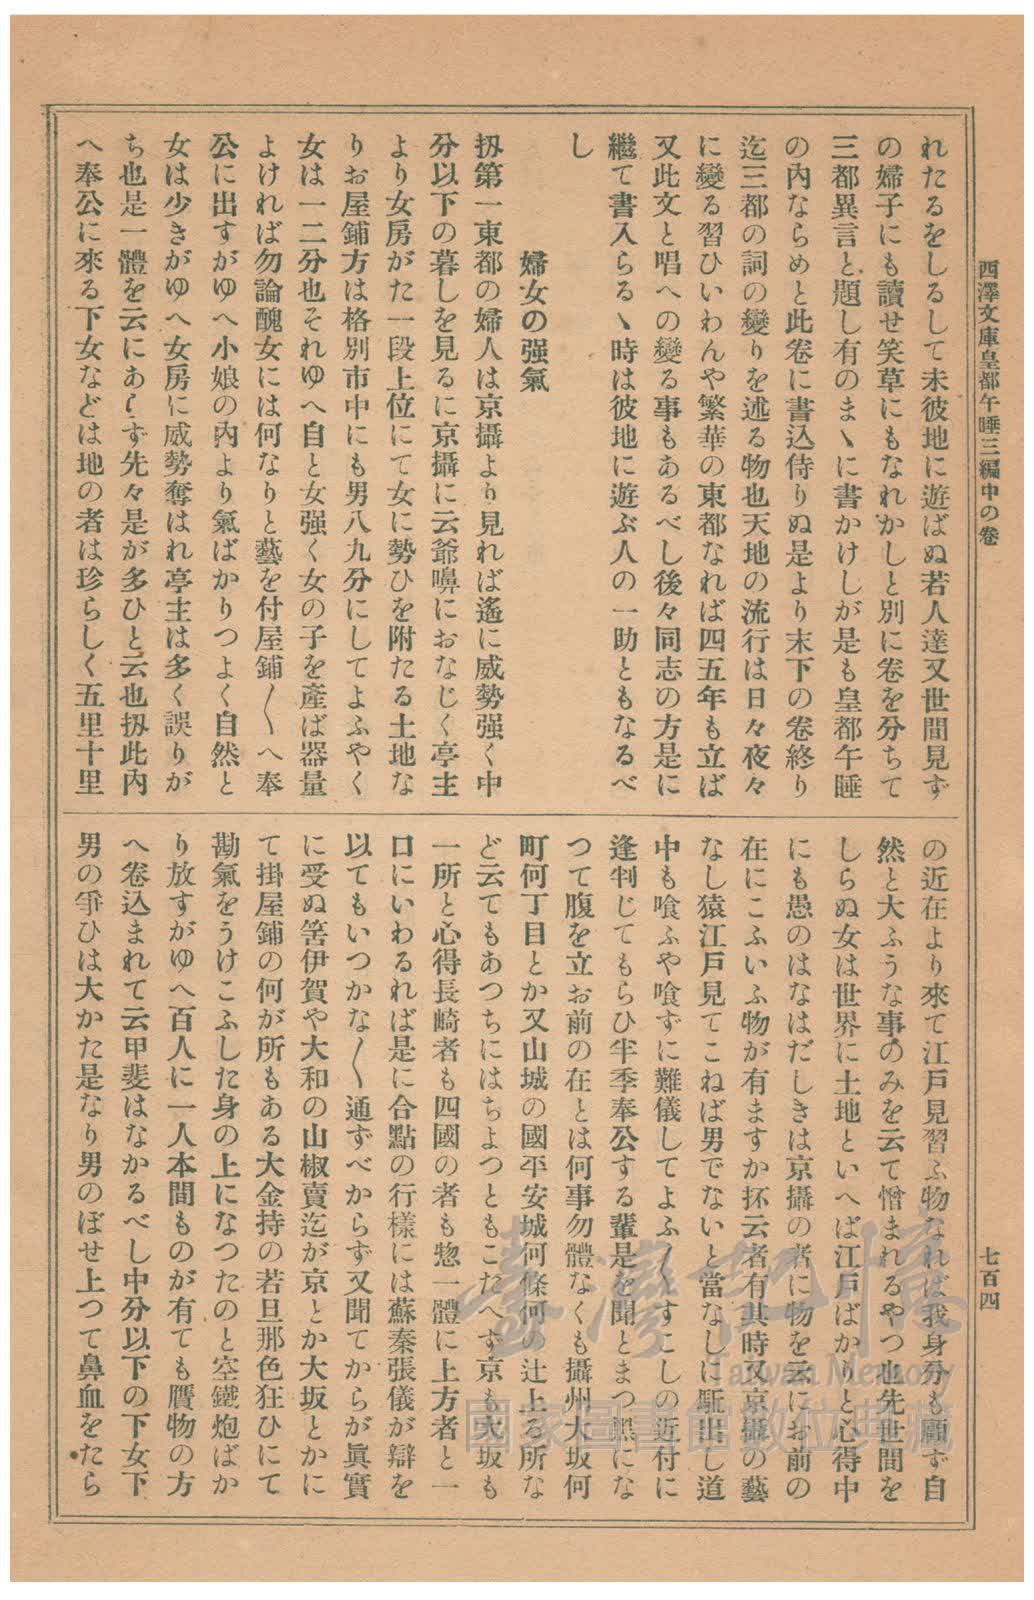 西澤文庫皇都午睡三編中の卷
七百四
れたるをしるして未彼地に遊ばぬ若人達又世間見ず
の婦子にも讀せ笑草にもなれかしと別に卷を分ちて
三都異言と題し有のまゝに書かけしが是も皇都午睡
の内ならめと此卷に書込侍りぬ是より末下の卷終り
迄三都の詞の變りを述る物也天地の流行は日々夜々
に變る習ひいわんや繁華の東都なれば四五年も立ば
又此文と唱への變る事もあるべし後々同志の方是に
繼て書入らるゝ時は彼地に遊ぶ人の一助ともなるべ
し
婦女の强氣
扨第一東都の婦人は京攝より見れば遙に威勢强く中
分以下の暮しを見るに京攝に云爺嚊におなじく亭主
より女房がた一段上位にて女に勢ひを附たる土地な
りお屋鋪方は格別市中にも男八九分にしてよふやく
女は一二分也それゆへ自と女强く女の子を產ば器量
よければ勿論醜女には何なりと藝を付屋鋪〱へ奉
公に出すがゆへ小娘の內より氣ばかりつよく自然と
女は少きがゆへ女房に威勢奪はれ亭主は多く誤りが
ち也是一體を云にあらず先々是が多ひと云也扨此內
へ奉公に來る下女などは地の者は珍らしく五里十里
の近在より來て江戶見習ふ物なれば我身分も顧ず自
然と大ふうな事のみを云て憎まれるやつ也先世間を
しらぬ女は世界に土地といへば江戶ばかりと心得中
にも愚のはなはだしきは京攝の者に物を云にお前の
在にこふいふ物が有ますか抔云者有其時又京攝の藝
なし猿江戶見てこねば男でないと當なしに駈出し道
中も喰ふや喰ずに難儀してよふ〱すこしの近付に
逢判じてもらひ半季奉公する輩是を聞とまつ黑にな
つて腹を立お前の在とは何事勿體なくも攝州大坂何
町何丁目とか又山城の國平安城何條何の辻上る所な
ど云てもあつちにはちよつともこたへず京も大坂も
一所と心得長崎者も四國の者も惣一體に上方者と一
口にいわるれば是に合點の行樣には蘇秦張儀が辯を
以てもいつかな〱通ずべからず又聞てからが眞實
に受ぬ筈伊賀や大和の山椒賣迄が京とか大坂とかに
て掛屋鋪の何が所もある大金持の若旦那色狂ひにて
勘氣をうけこふした身の上になつたのと空鐵炮ばか
り放すがゆへ百人に一人本間ものが有ても贋物の方
へ卷込まれて云甲斐はなかるべし中分以下の下女下
男の爭ひは大かた是なり男のぼせ上つて鼻血をたら
臺灣記憶
Taiwan Memory
國家圖書館數位典藏